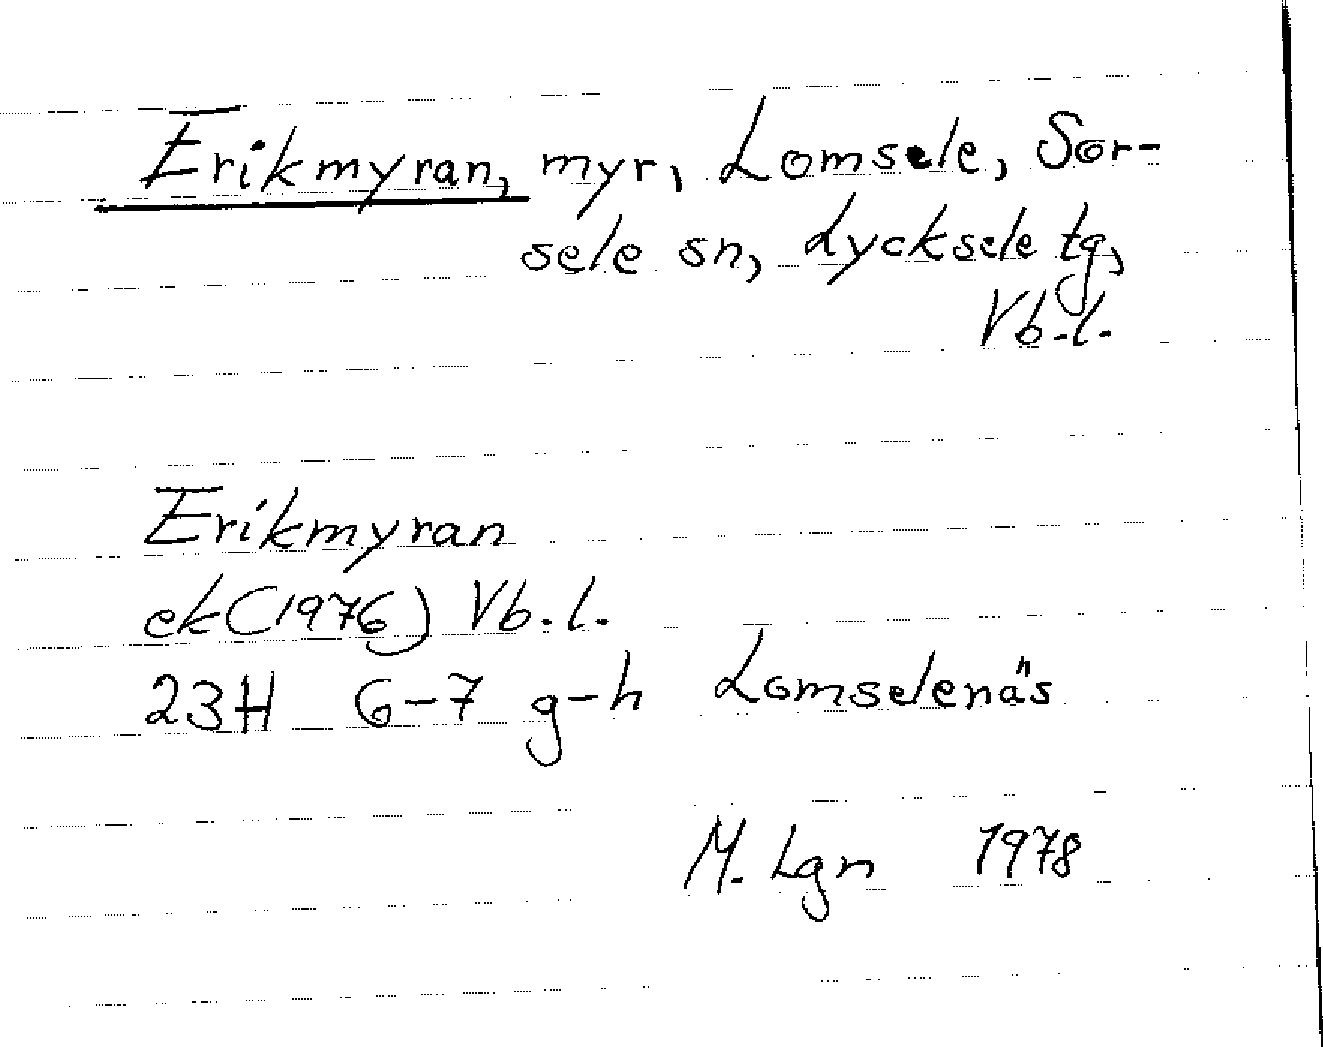 Erikmyran, myr, Lomsele, Sor-
sele sn, Lycksele tg,
Vb.l.
Erikmyran
ek (1976) Vb.l.
23H 6-7 g-h Lomselenäs
M. Lgn 1978